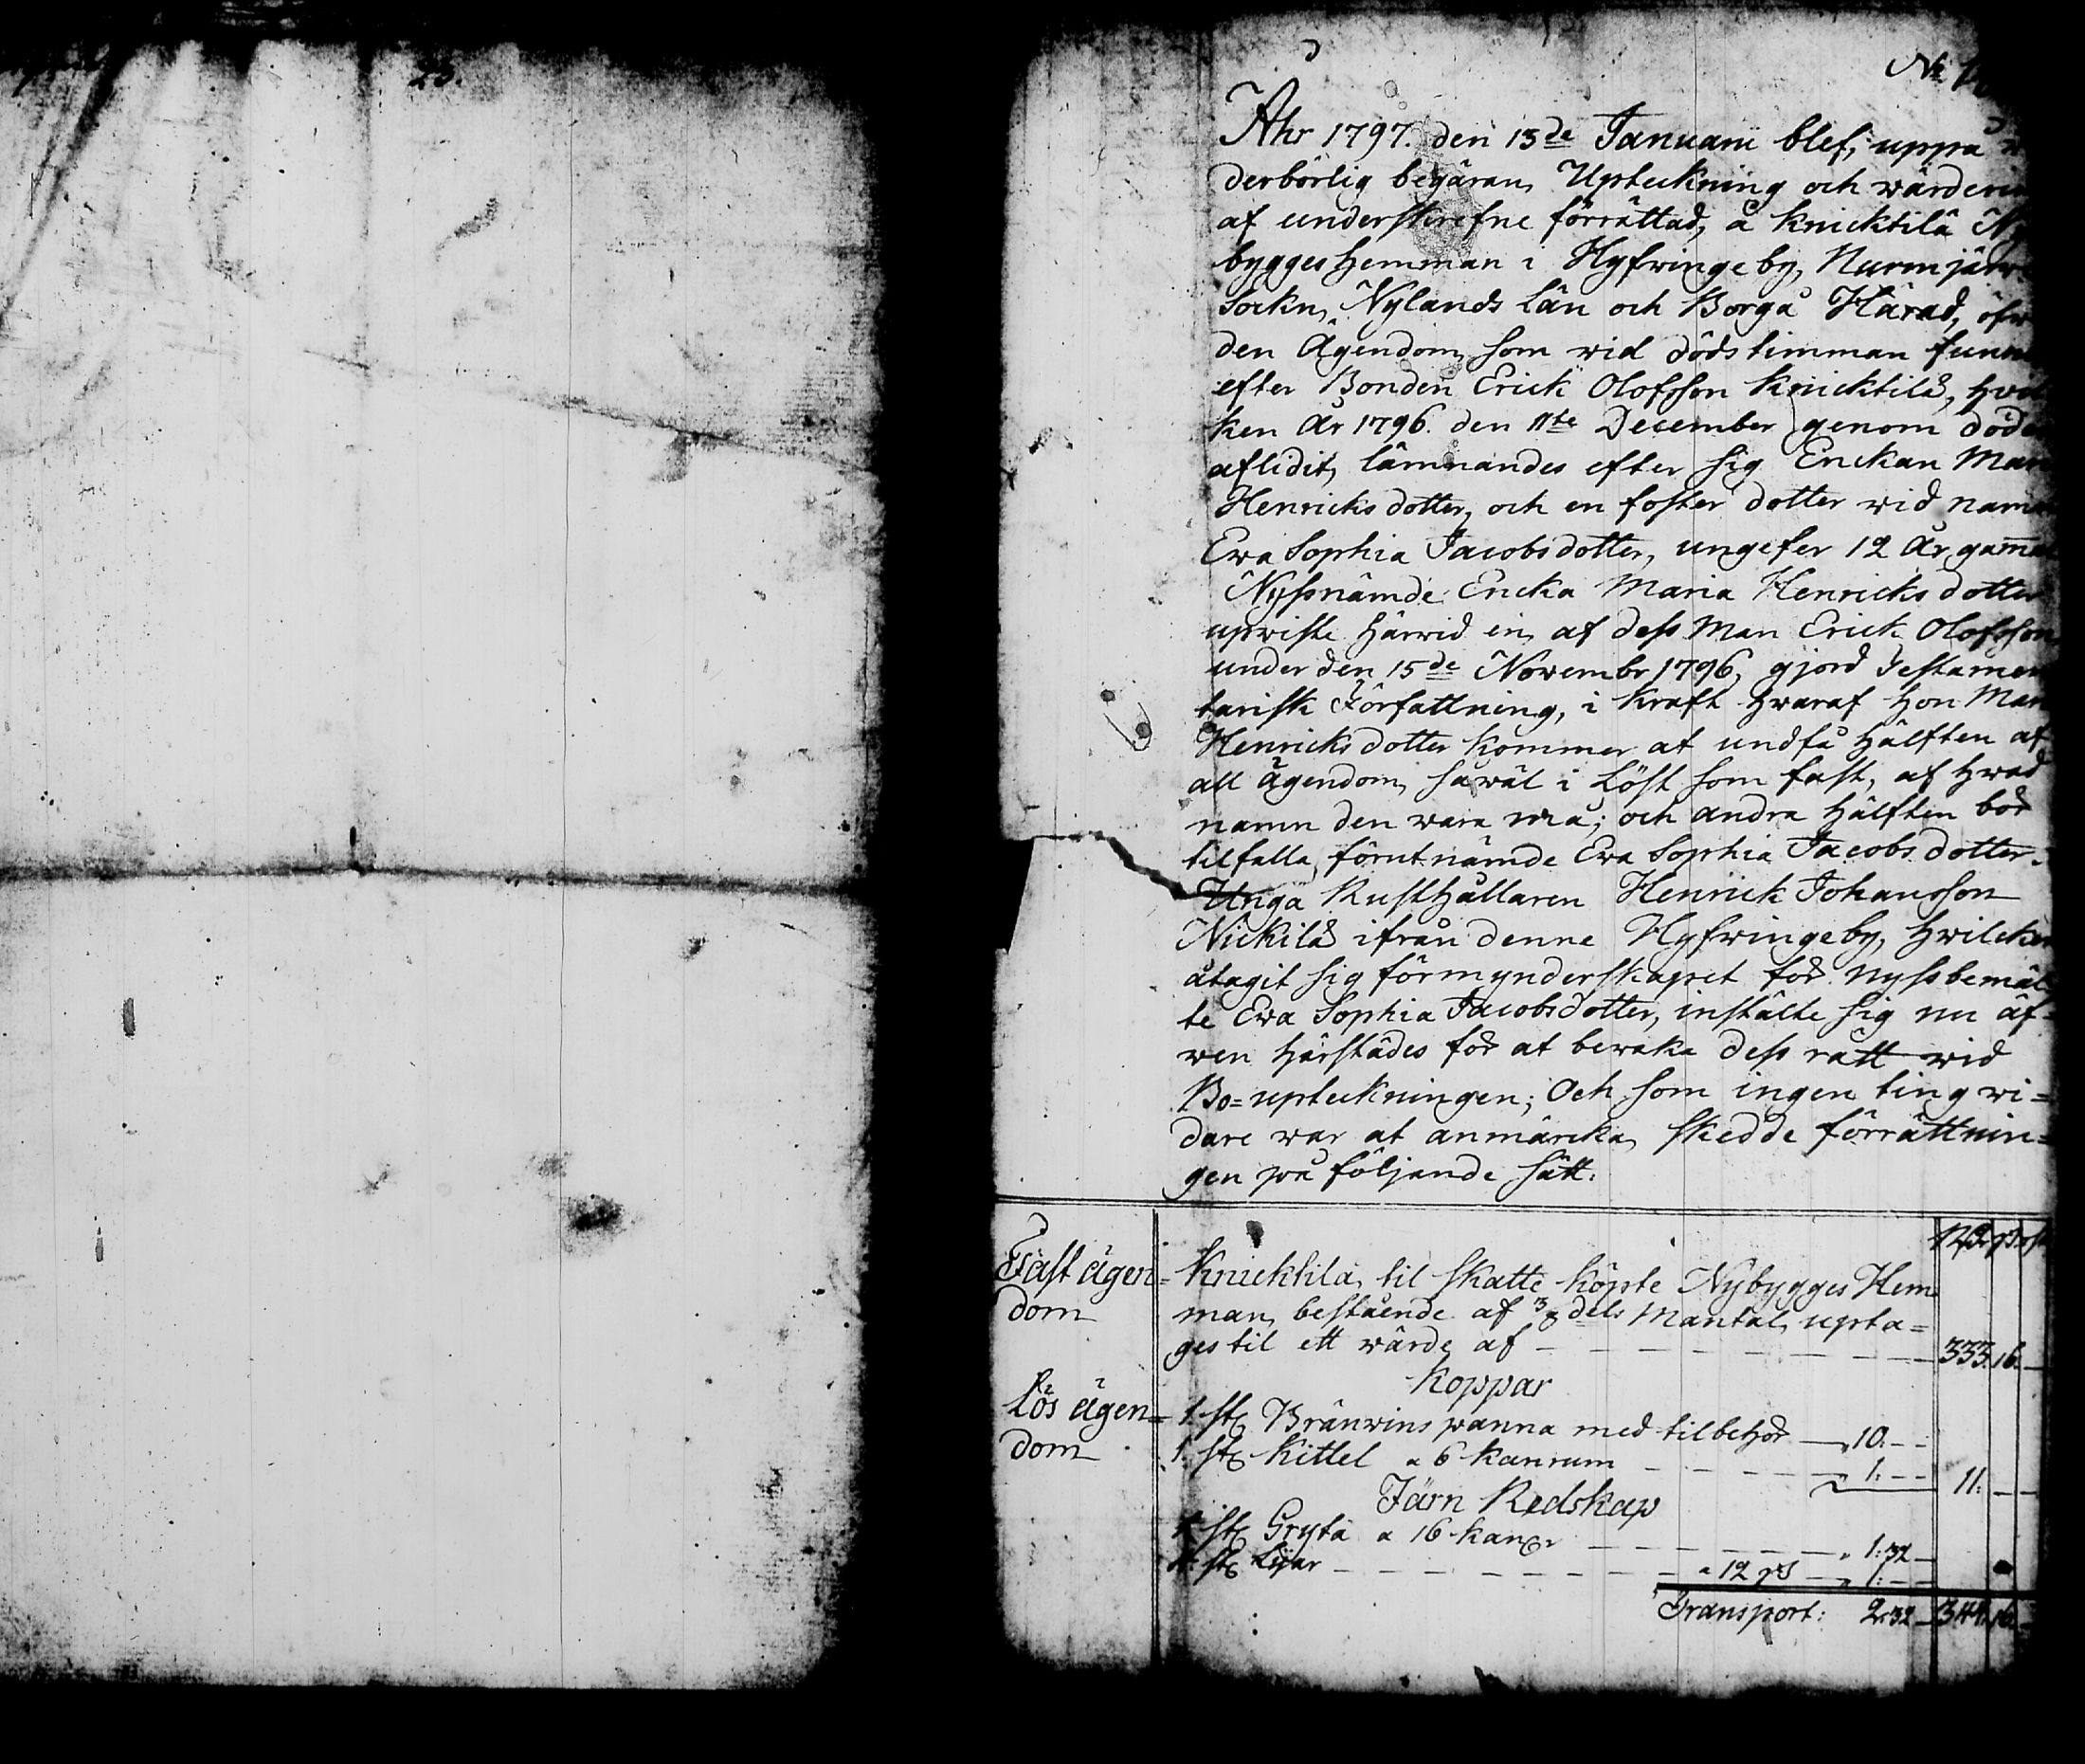 23.
No
Åhr 1797. den 13de Januarii blef, uppå
derbörlig begäran, Upteckning och wärderin
af underskrefne förrättad, å Knicktilä Ny
bygges Hemman i Hyfwinge by, Nurmjärw
Sockn, Nylands Län och Borgå Härad, öfw
den Ägendom, som wid dödstimman funn
efter Bonden Erick Olofsson Knicktilä, hvil
ken År 1796. den 11te December genom död
aflidit, lämnandes efter sig Enckan Mar
Henricksdotter, och en foster dotter wid namn
Ewa Sophia Jacobsdotter, ungefer 12 År gammal
Nyssnämde Encka Maria Henricksdotter
upwiste härwid en, af dess Man Erick Olofsson
under den 15de Novembr 1796, gjord Testamen
tarisk Författning, i kraft hwaraf hon Mar
Henricksdotter kommer at undfå hälften af
all ägendom, såwäl i Löst som fast, af hwad
namn den wara må; och andra hälften bör
tilfalla förutnämde Ewa Sophia Jacobsdotter.
Unga Rusthållaren Henrick Johansson
Nickilä ifrån denne Hyfwinge by, hwilcken
åtagit sig förmynderskapet för nyssbemäl
te Ewa Sophia Jacobsdotter, instälte sig nu äf=
wen härstädes för at bewaka dess rätt wid
Bo=upteckningen; Och som ingen ting wi=
dare war at anmärcka, skedde förrättnin=
gen på följande sätt:
Fast ägen=
dom
Knicktilä, til skatte köpte Nybygges Hem
man, bestående af 3/8 dels Mantal, upta=
ges til ett wärde af 333. 16.
Koppar
Lös ägen=
dom
1. st Bränwins panna med tilbehör 10.
1. st Kittel a 6 kannrum 1. 11.
Järn Redskap
1. st Gryta a 16 kanr 1: 32
st Lijar a 12 1:
Transport: 2: 32 344. 16.